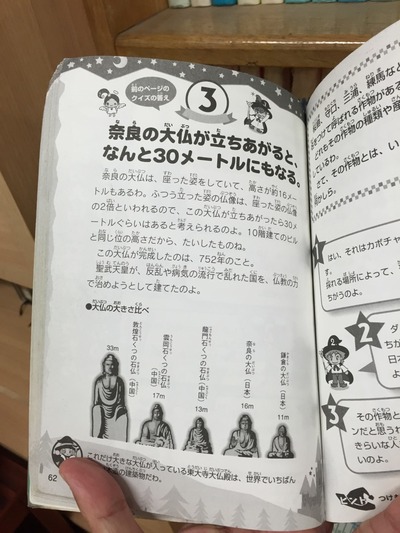 前のページの
クイズの答え
3
奈良の大仏が立ちあがると、
なんと30メートルにもなる。
奈良の大仏は、座った姿をしていて、高さが約16メー
トルもあるわ。ふつう立った姿の仏像は、座った姿の仏像
の2倍といわれるので、この大仏が立ちあがったら30メ
ートルぐらいはあると考えられるのよ。10階建てのビル
と同じ位の高さだから、たいしたものね。
この大仏が完成したのは、752年のこと。
聖武天皇が、反乱や病気の流行で乱れた国を、仏教の力
で治めようとして建てたのよ。
●大仏の大きさ比べ
敦煌石くつの石仏(中国)
33m
雲岡石くつの石仏(中国)
17m
龍門石くつの石仏(中国)
13m
奈良の大仏(日本)
16m
鎌倉の大仏(日本)
11m
これだけ大きな大仏が入っている東大寺大仏殿は、世界でいちばん
の建築物だわ。
62
島、守口、三浦、練馬など
をつけて呼ばれる作物がある
どれもその作物の種類や産
しているわ。
さて、その作物とは、い
だから。
1
はい、それはカボチャ
す。
採れる場所によって、
ちがうのよ。
2
ダ
ちが
日本
よ
3
その作物と
ンだと思うわ
きらいな人
いのよ。
ヒント
つけ